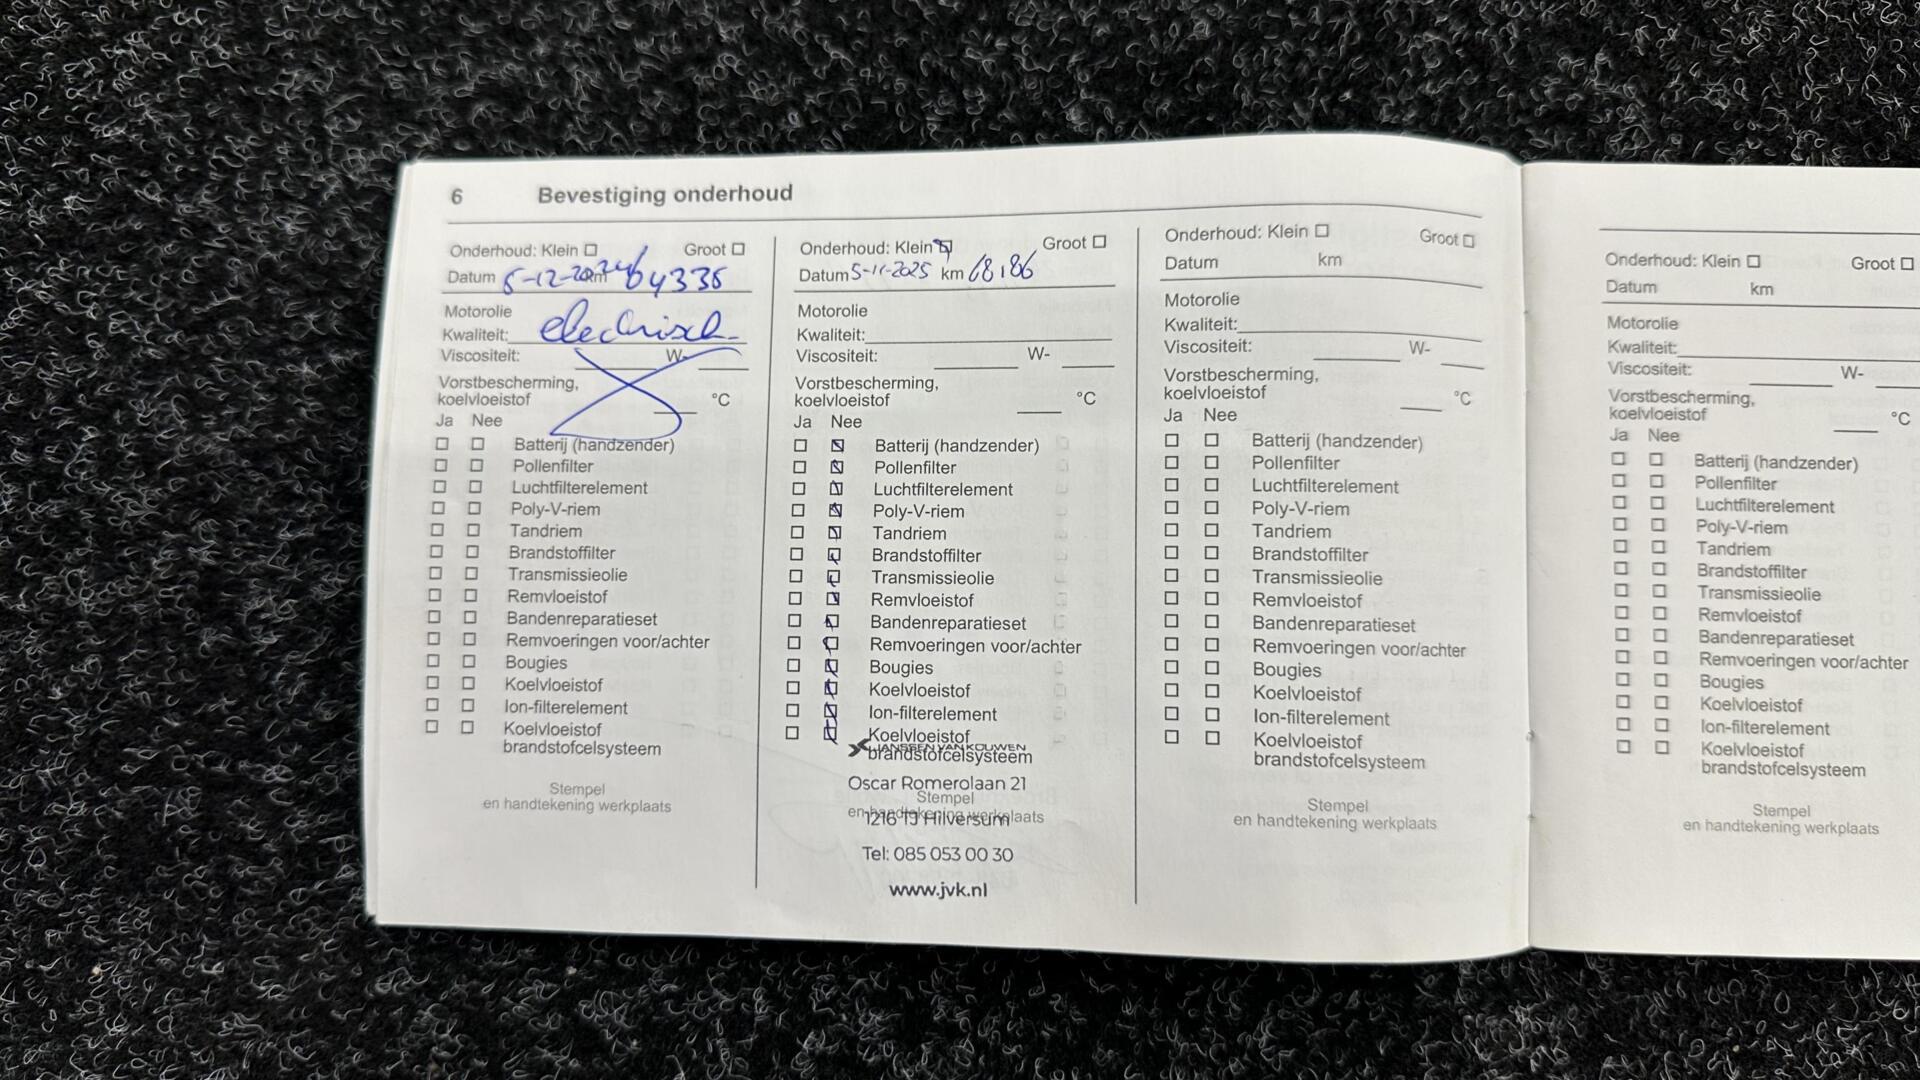 6 Bevestiging onderhoud
Onderhoud: Klein Groot
Datum 5-12-2024 km 64335
Motorolie
Kwaliteit: electrisch
Viscositeit: W-
Vorstbescherming,
koelvloeistof °C
Ja Nee
Batterij (handzender)
Pollenfilter
Luchtfilterelement
Poly-V-riem
Tandriem
Brandstoffilter
Transmissieolie
Remvloeistof
Bandenreparatieset
Remvoeringen voor/achter
Bougies
Koelvloeistof
Ion-filterelement
Koelvloeistof
brandstofcelsysteem
Stempel
en handtekening werkplaats
Onderhoud: Klein Groot
Datum 5-11-2025 km 68186
Motorolie
Kwaliteit:
Viscositeit: W-
Vorstbescherming,
koelvloeistof °C
Ja Nee
Batterij (handzender)
Pollenfilter
Luchtfilterelement
Poly-V-riem
Tandriem
Brandstoffilter
Transmissieolie
Remvloeistof
Bandenreparatieset
Remvoeringen voor/achter
Bougies
Koelvloeistof
Ion-filterelement
Koelvloeistof
JANSSEN VAN KOUWEN
brandstofcelsysteem
Oscar Romerolaan 21
Stempel
en handtekening werkplaats
1216 TJ Hilversum
Tel: 085 053 00 30
www.jvk.nl
Onderhoud: Klein Groot
Datum km
Motorolie
Kwaliteit:
Viscositeit: W-
Vorstbescherming,
koelvloeistof °C
Ja Nee
Batterij (handzender)
Pollenfilter
Luchtfilterelement
Poly-V-riem
Tandriem
Brandstoffilter
Transmissieolie
Remvloeistof
Bandenreparatieset
Remvoeringen voor/achter
Bougies
Koelvloeistof
Ion-filterelement
Koelvloeistof
brandstofcelsysteem
Stempel
en handtekening werkplaats
Onderhoud: Klein Groot
Datum km
Motorolie
Kwaliteit:
Viscositeit: W-
Vorstbescherming,
koelvloeistof °C
Ja Nee
Batterij (handzender)
Pollenfilter
Luchtfilterelement
Poly-V-riem
Tandriem
Brandstoffilter
Transmissieolie
Remvloeistof
Bandenreparatieset
Remvoeringen voor/achter
Bougies
Koelvloeistof
Ion-filterelement
Koelvloeistof
brandstofcelsysteem
Stempel
en handtekening werkplaats